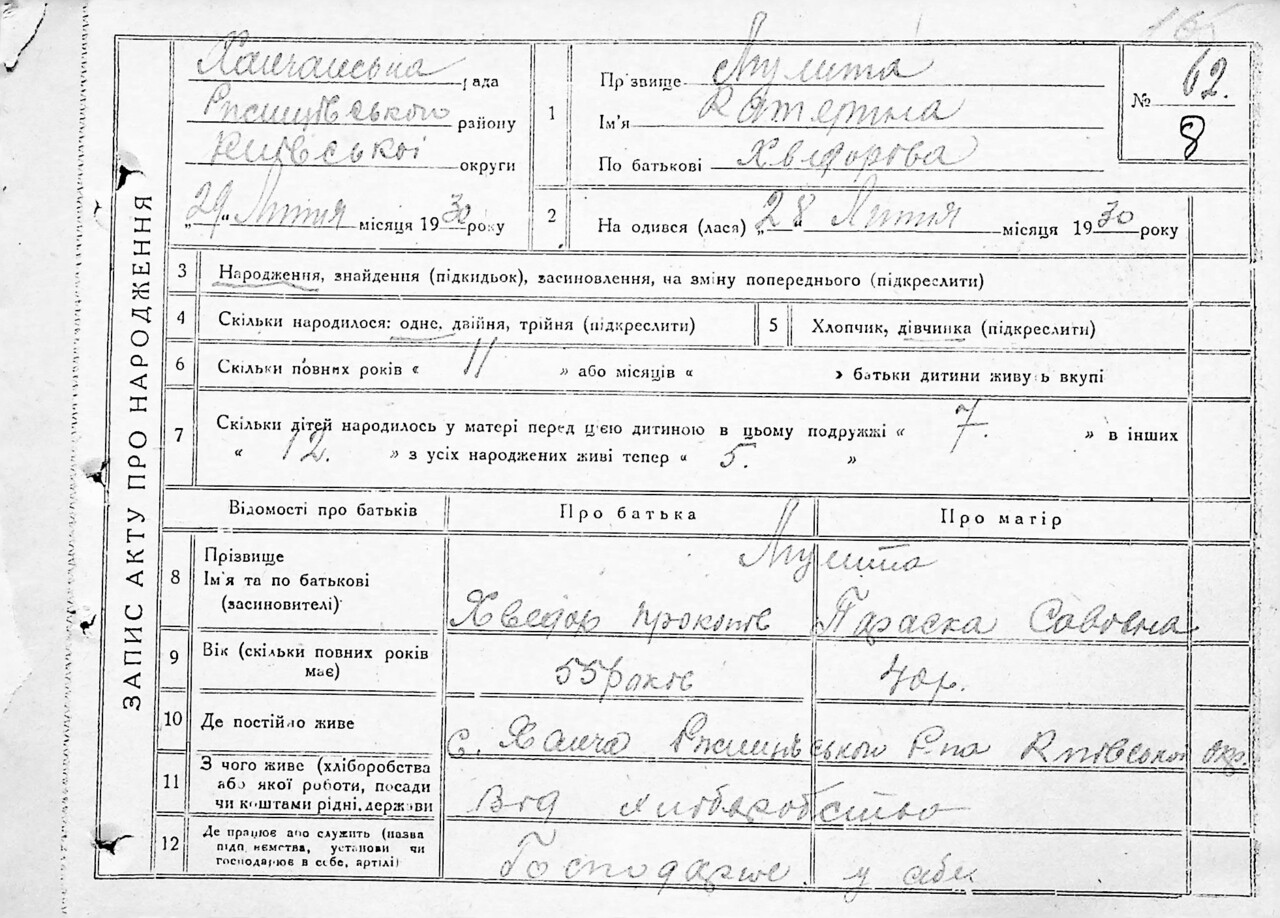 ЗАПИС АКТУ ПРО НАРОДЖЕННЯ
Ханчанська рада
Ржищівського району
Київської округи
„29“ Лютня місяця 1930 року
1 Пр звище Мулита
Ім'я Катерина
По батькові Хведорова
№ 62.
8
2 На одився (лася) „28“ Лютня місяця 1930 року
3 Народження, знайдення (підкидьок), засиновлення, на зміну попереднього (підкреслити)
4 Скільки народилося: одне, двійня, трійня (підкреслити)
5 Хлопчик, дівчинка (підкреслити)
6 Скільки повних років « 11 » або місяців « » батьки дитини живуть вкупі
7 Скільки дітей народилось у матері перед цією дитиною в цьому подружжі « 7. » в інших
« 12. » з усіх народжених живі тепер « 5. »
Відомості про батьків Про батька Про матір
8 Прізвище
Ім'я та по батькові
(засиновителі)
Мулита
Хведор Прокопів Параска Сововна
9 Вік (скільки повних років
має)
55 років 40 р.
10 Де постійно живе
с. Ханча Ржищівської Р-на Київської Окр.
11 З чого живе (хліборобства
або якої роботи, посади
чи коштами рідні, держави
Від хліборобство
12 Де працює або служить (назва
підп иємства, установи чи
господарює в себе, артілі)
Господарює у себе